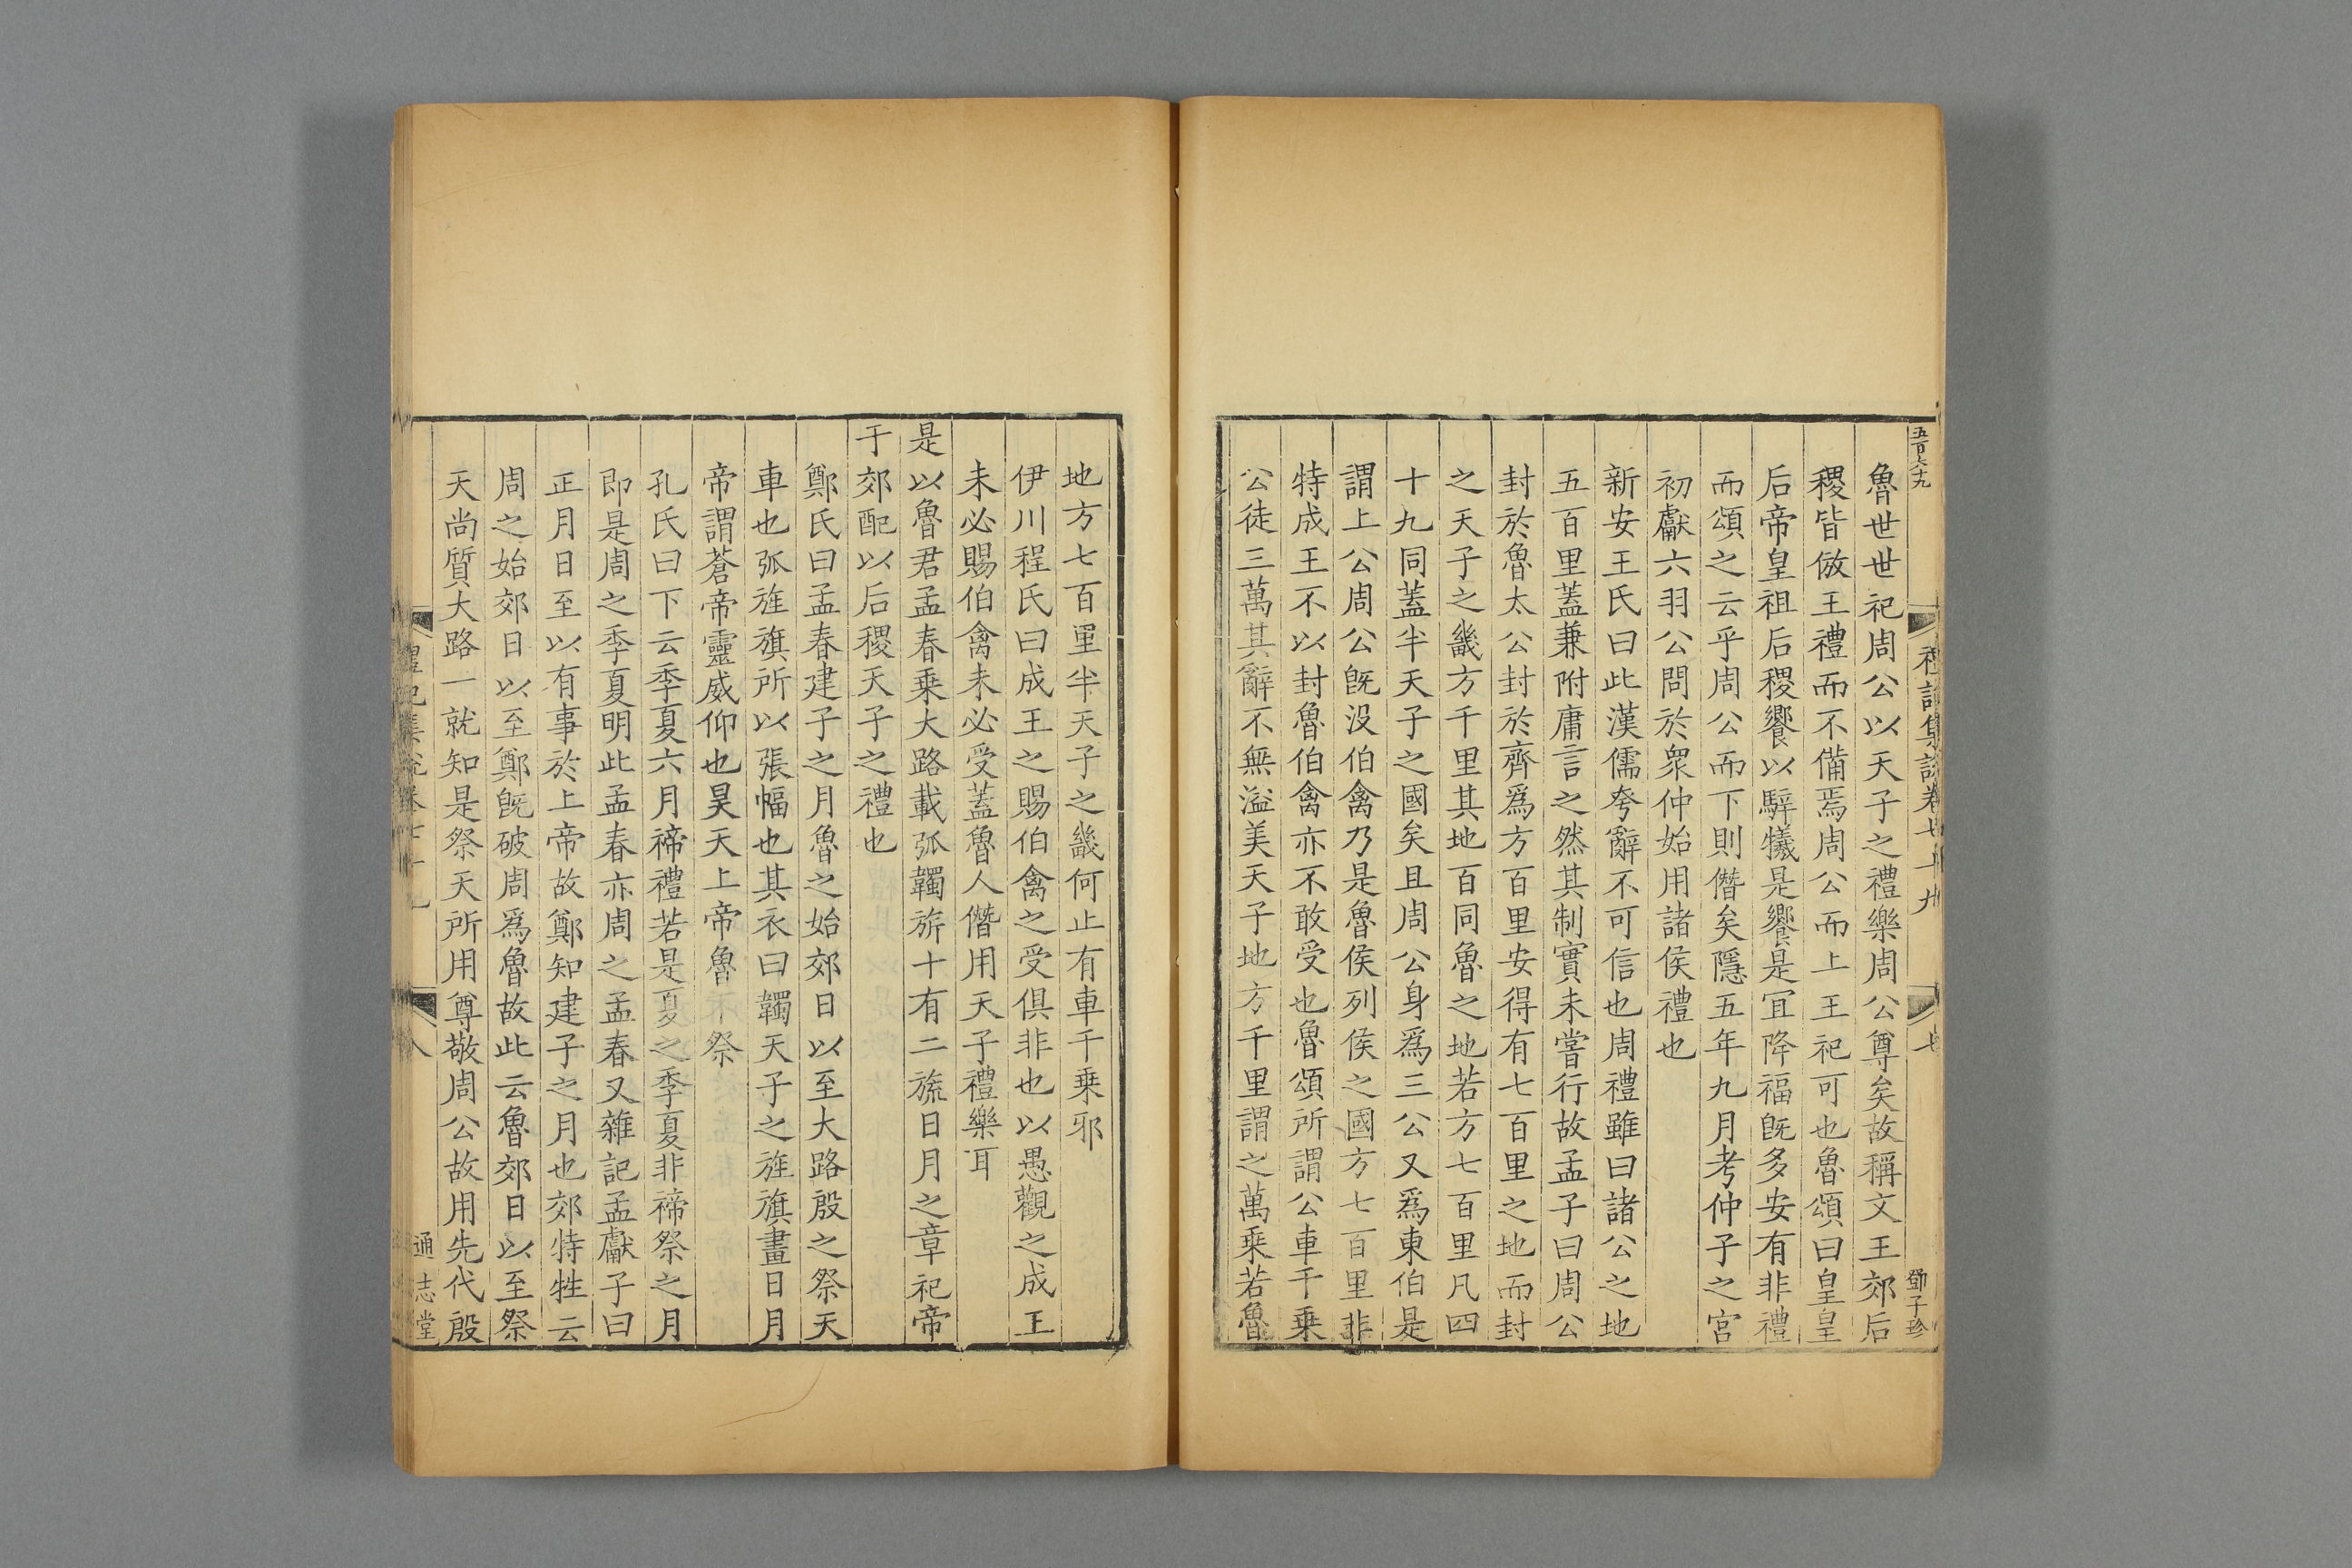 五百六十九
禮記集說卷七十九
七
鄧子珍
魯世世祀周公以天子之禮樂周公尊矣故稱文王郊后
稷皆倣王禮而不備焉周公而上王祀可也魯頌曰皇皇
后帝皇祖后稷饗以騂犧是饗是宜降福既多安有非禮
而頌之云乎周公而下則僭矣隱五年九月考仲子之宮
初獻六羽公問於衆仲始用諸侯禮也
新安王氏曰此漢儒夸辭不可信也周禮雖曰諸公之地
五百里蓋兼附庸言之然其制實未嘗行故孟子曰周公
封於魯太公封於齊爲方百里安得有七百里之地而封
之天子之畿方千里其地百同魯之地若方七百里凡四
十九同蓋半天子之國矣且周公身爲三公又爲東伯是
謂上公周公既沒伯禽乃是魯侯列侯之國方七百里非
特成王不以封魯伯禽亦不敢受也魯頌所謂公車千乗
公徒三萬其辭不無溢美天子地方千里謂之萬乗若魯
地方七百里半天子之畿何止有車千乗邪
伊川程氏曰成王之賜伯禽之受俱非也以愚觀之成王
未必賜伯禽未必受蓋魯人僭用天子禮樂耳
是以魯君孟春乗大路載弧韣旂十有二旒日月之章祀帝
于郊配以后稷天子之禮也
鄭氏曰孟春建子之月魯之始郊日以至大路殷之祭天
車也弧旌旗所以張幅也其衣曰韣天子之旌旗畫日月
帝謂蒼帝靈威仰也昊天上帝魯不祭
孔氏曰下云季夏六月禘禮若是夏之季夏非禘祭之月
即是周之季夏明此孟春亦周之孟春又雜記孟獻子曰
正月日至以有事於上帝故鄭知建子之月也郊特牲云
周之始郊日以至鄭既破周爲魯故此云魯郊日以至祭
天尚質大路一就知是祭天所用尊敬周公故用先代殷
禮記集說卷七十九
八
通志堂